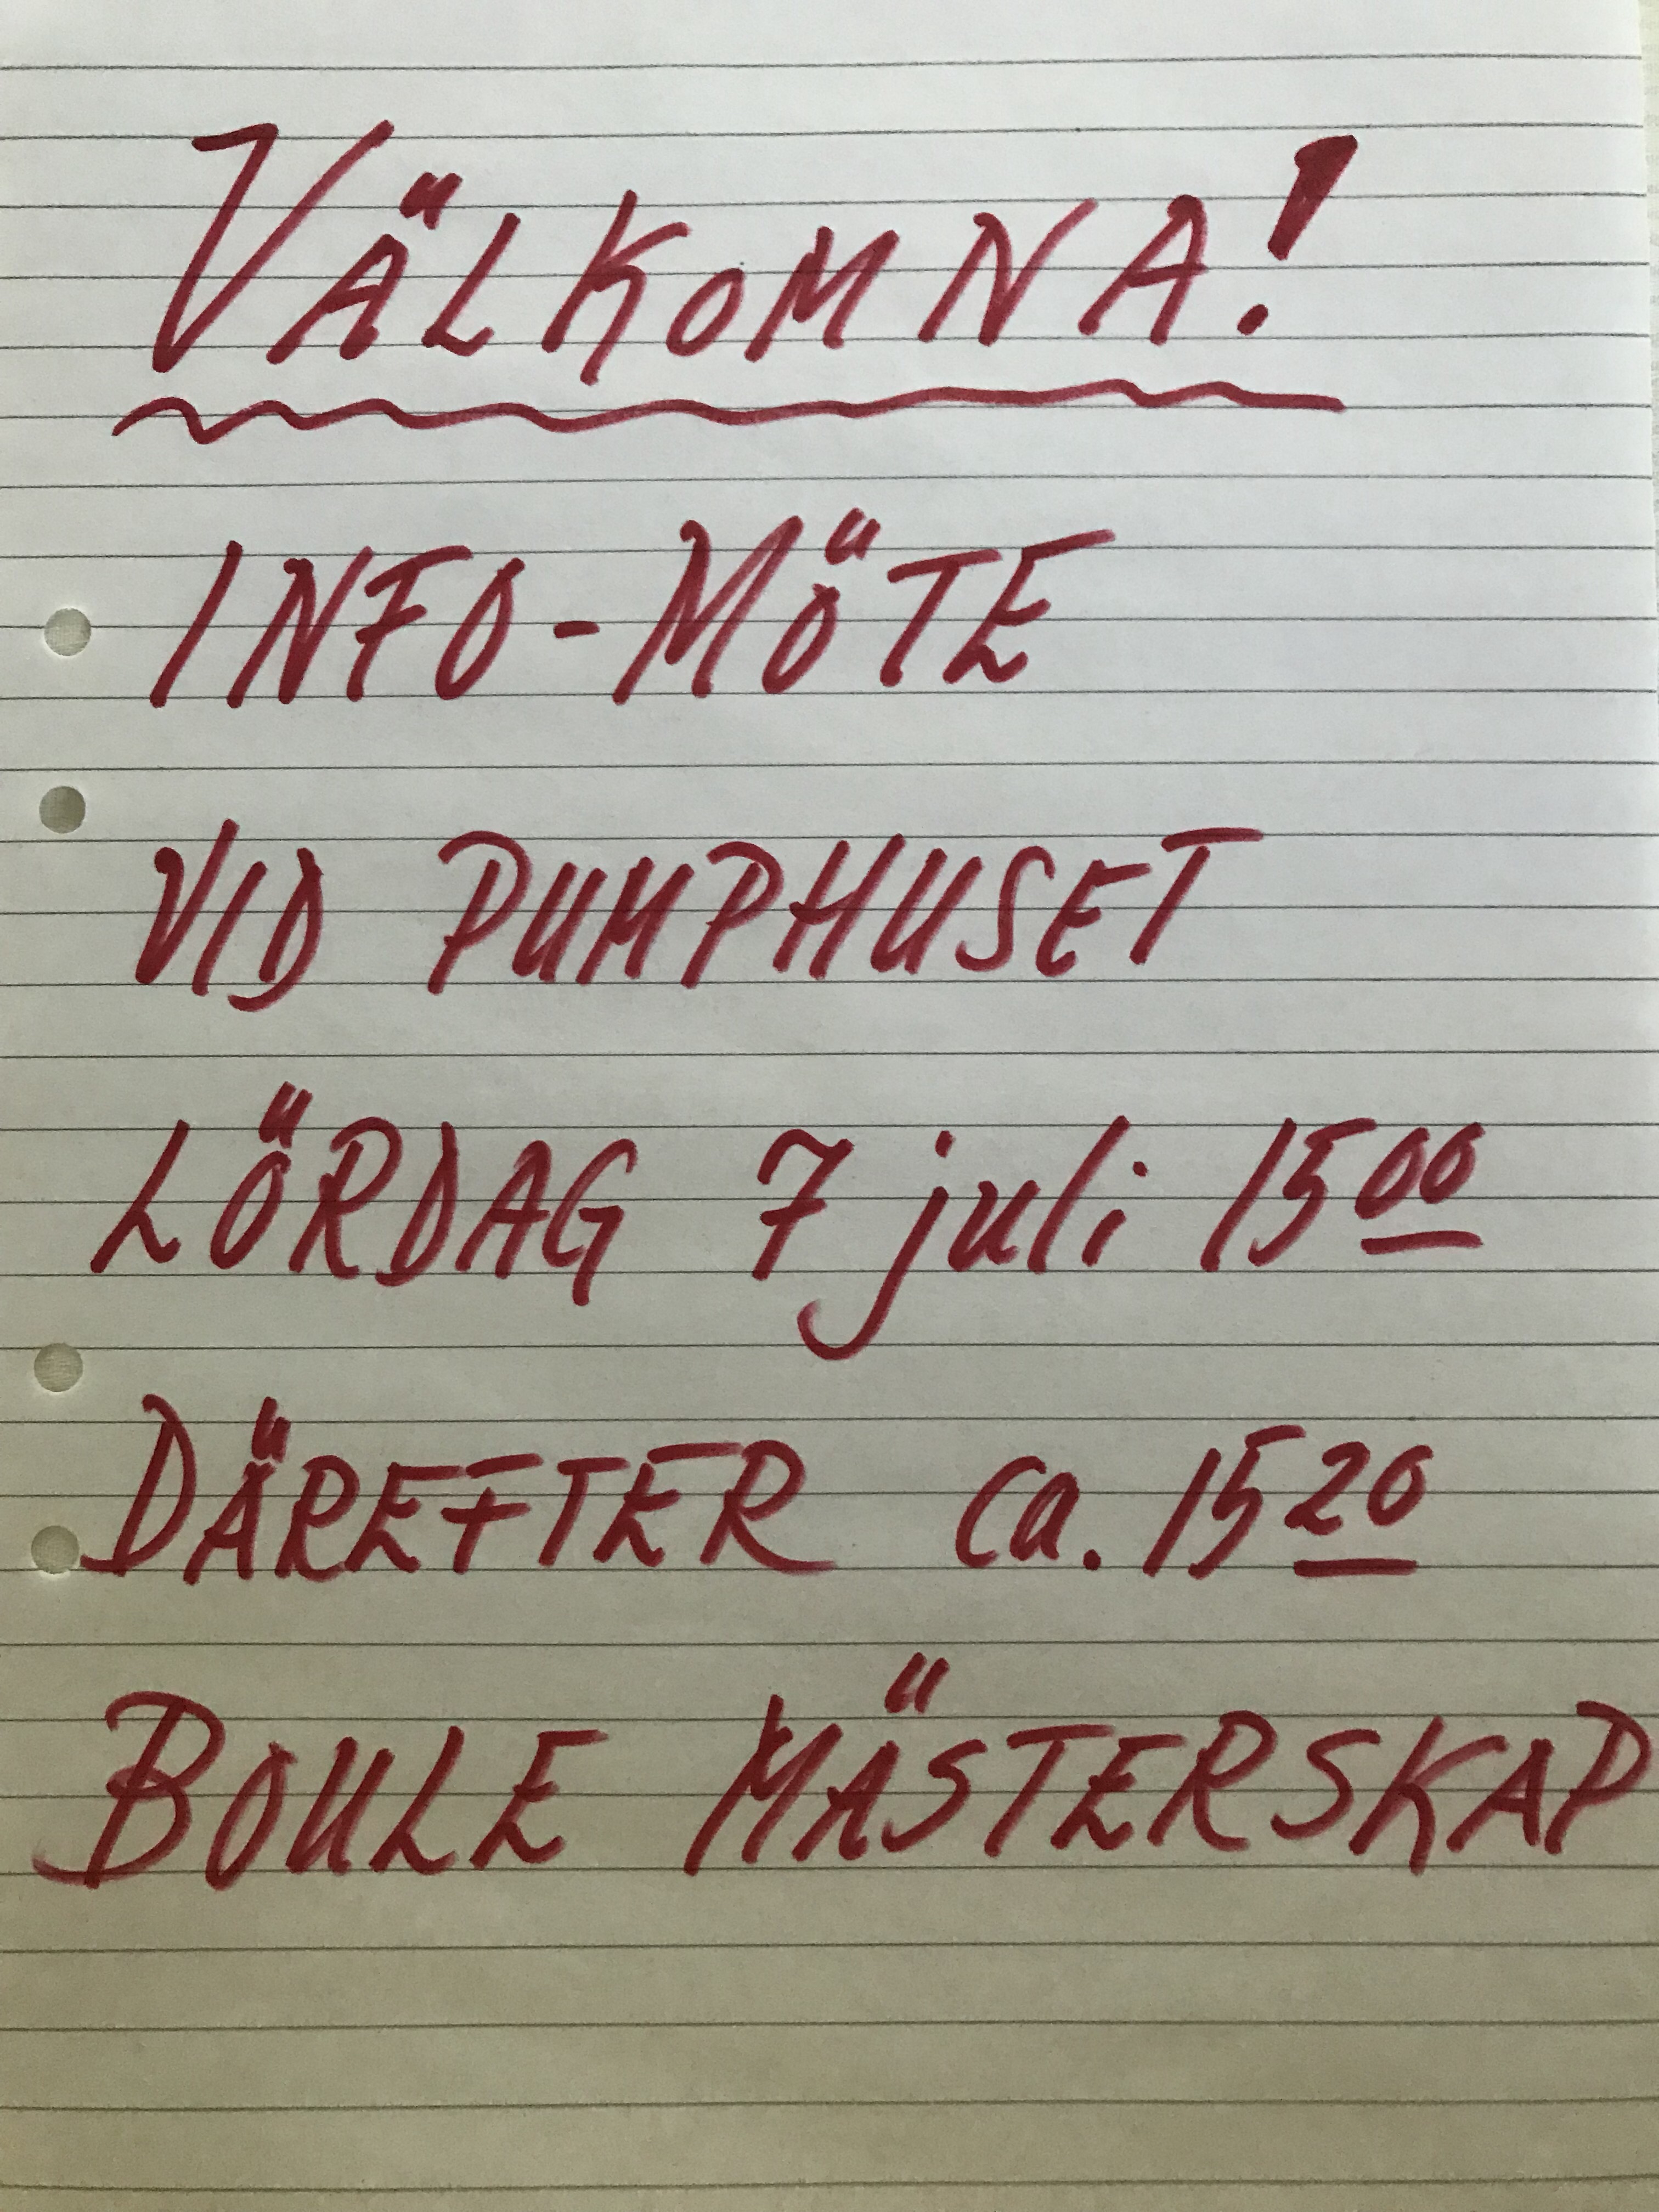 VÄLKOMNA!
INFO-MÖTE
VID PUMPHUSET
LÖRDAG 7 juli 1500
DÄREFTER ca. 1520
BOULE MÄSTERSKAP